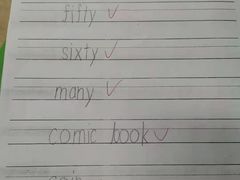 fifty
sixty
many
comic book